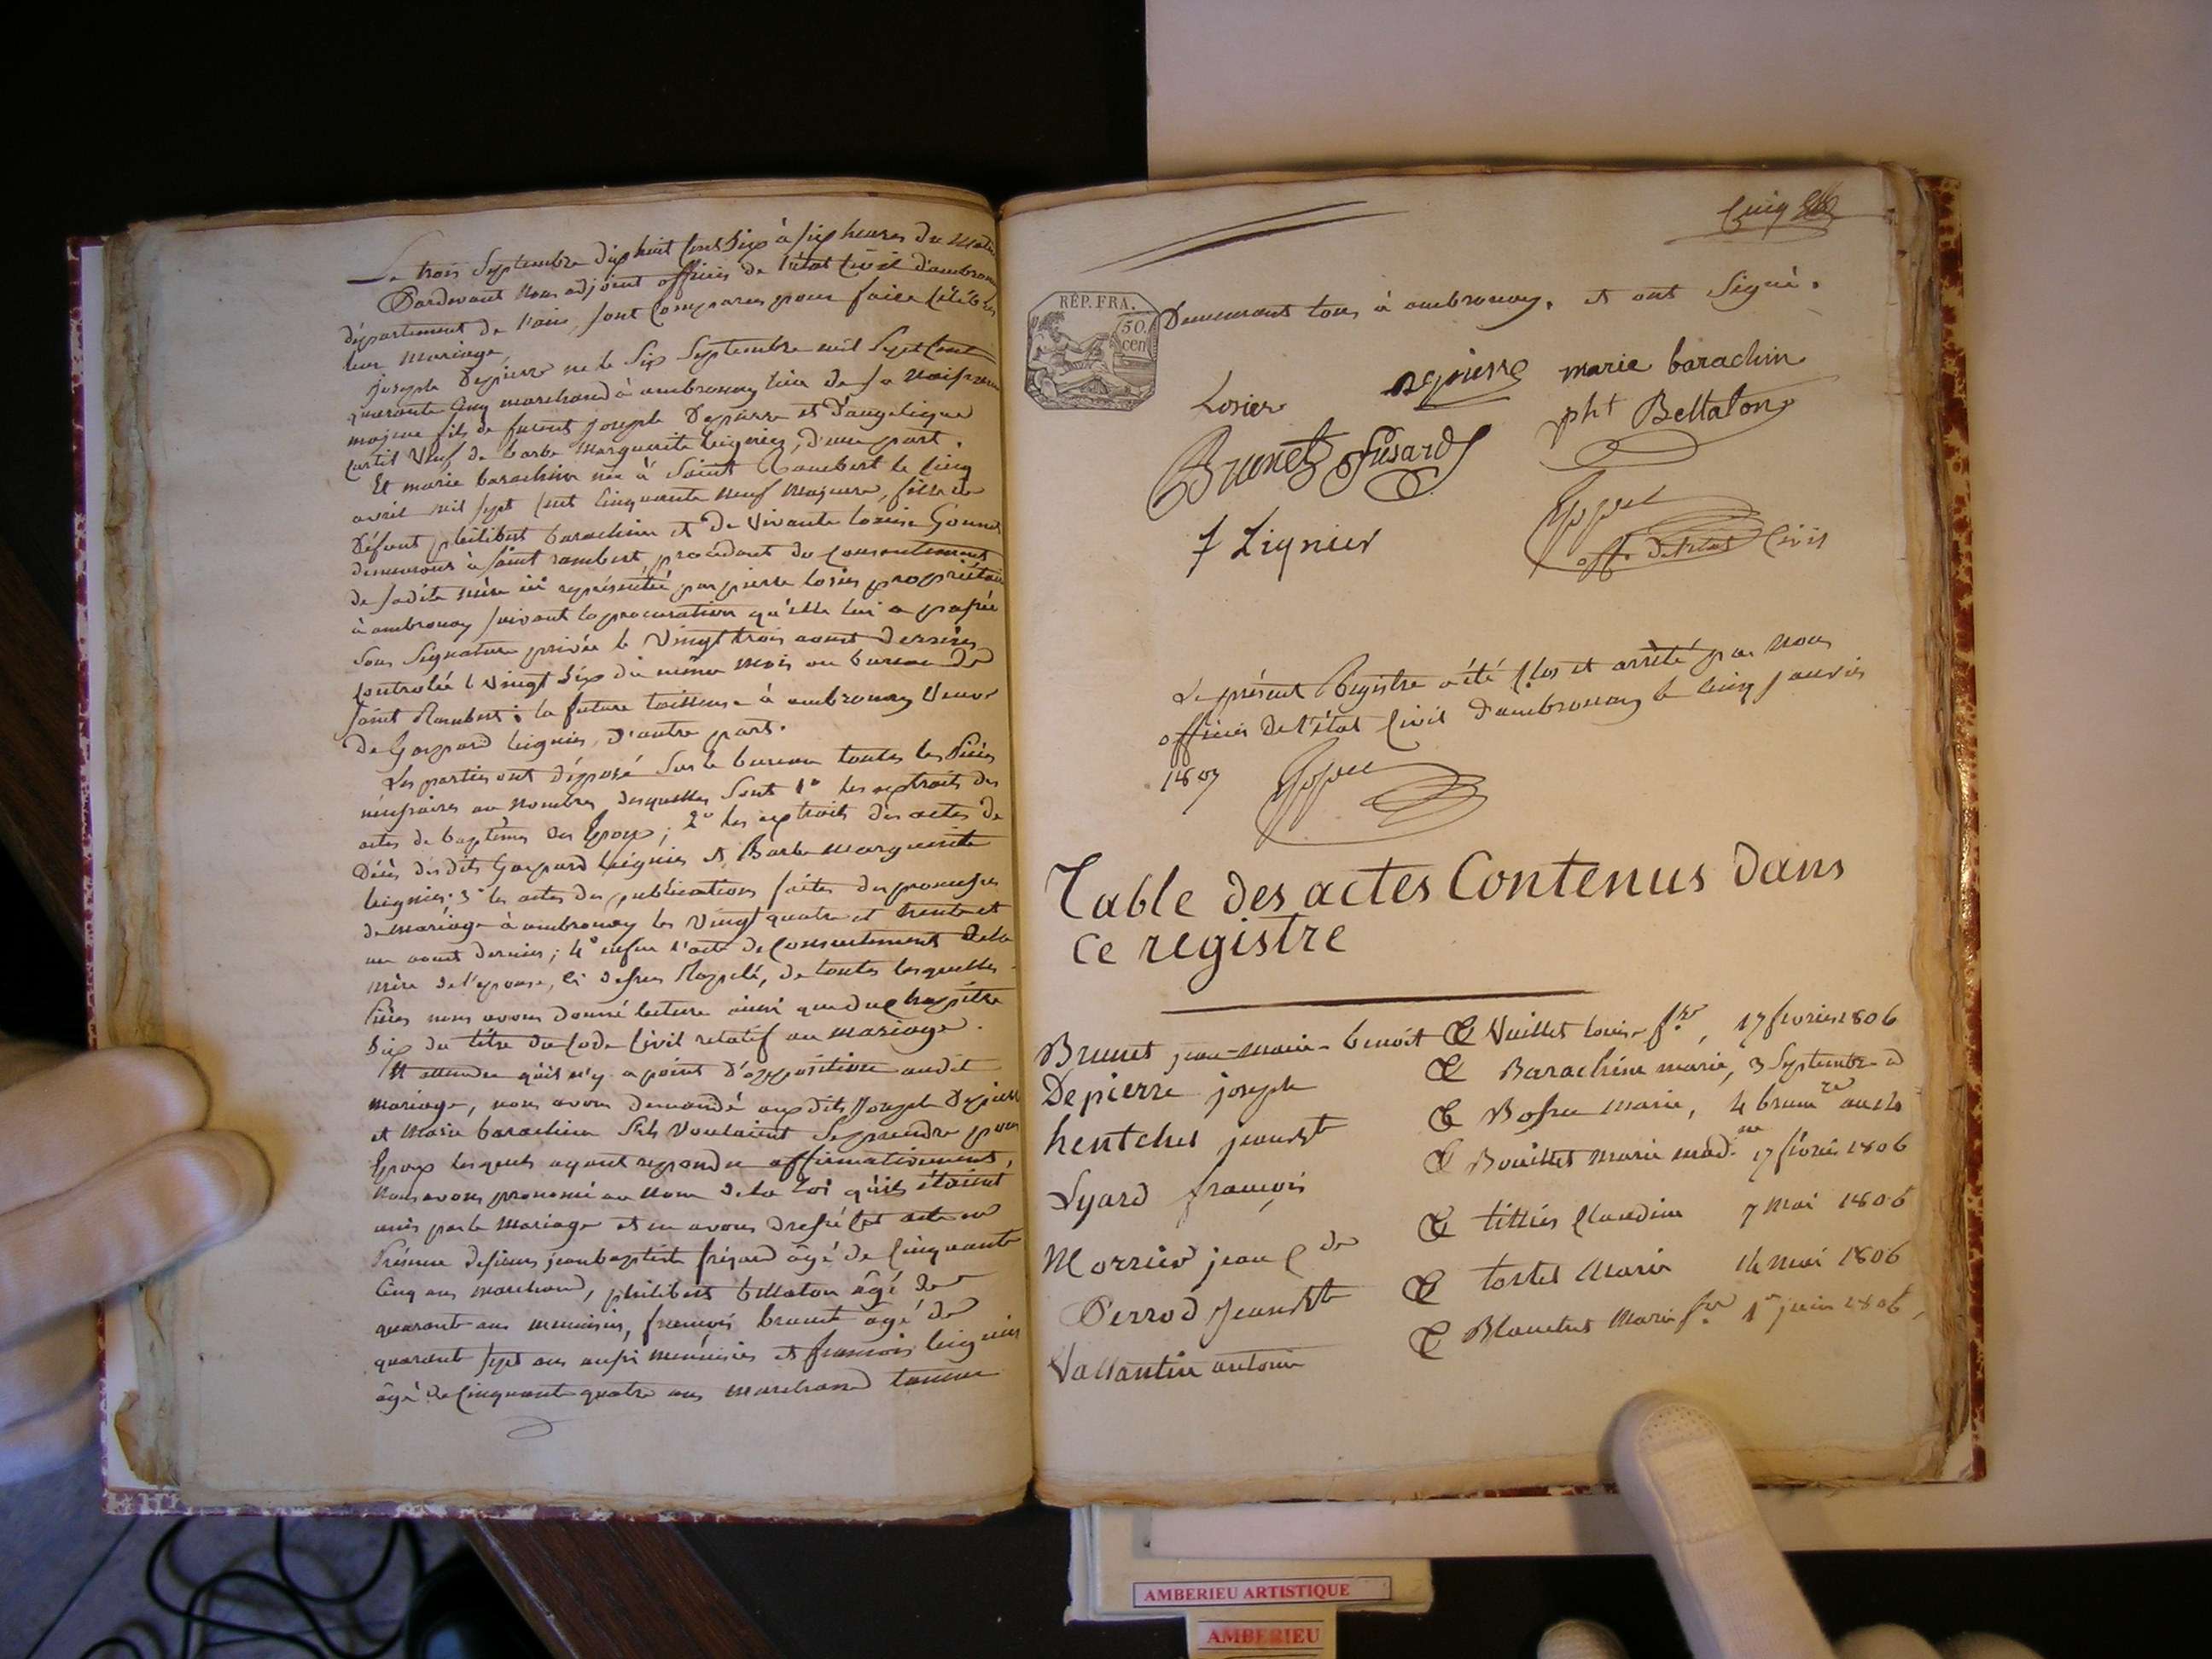 Le trois Septembre dix huit Cent Six à six heures du Matin
Pardevant Nous adjoint officier de l'état Civil d'ambronay
département de l'ain, sont Comparus pour faire Célébrer
leur Mariage,
joseph Depierre né le Six Septembre mil Sept Cent
quarante Cinq marchand à ambronay lieu de sa Naissance
majeur fils de furent joseph Depierre et d'angelique
Curtil Veuf de barbe Marguerite leignier, d'une part.
Et marie barachin née à Saint Rambert le Cinq
avril mil sept Cent Cinquante Neuf Majeure, fille de
Défunt philibert barachin et de Vivante louise
demeurans à saint rambert, procédant du Consentement
de sadite mère ici représentée par pierre losier propriétaire
à ambronay suivant la procuration qu'elle lui a passée
sous Signature privée le Vingt trois aoust dernier,
Controlée le Vingt Six du même mois au bureau de
saint Rambert; la future tailleuse à ambronay Veuve
De Gaspard leignier, d'autre part.
Les parties ont déposé Sur le bureau toutes les Pièces
nécessaires au Nombre desquelles Sont 1° les extraits des
actes de baptêmes des Epoux; 2° les extraits des actes de
Décès desdits Gaspard leignier et Barbe Marguerite
leignier; 3° les actes des publications faites des promesses
de mariage à ambronay les Vingt quatre et trente et
un aoust dernier; 4° enfin l'acte de Consentement de la
mère de l'epouse, Ci dessus Rappelé, de toutes lesquelles
Pièces nous avons donné lecture ainsi que du Chapitre
Six du titre du Code Civil relatif au mariage.
Et attendu qu'il n'y a point d'opposition audit
mariage, nous avons demandé auxdits joseph Depierre
et Marie barachin S'ils Voulaient Se prendre pour
Epoux lesquels ayant repondu affirmativement,
Nous avons prononcé au Nom de la Loi qu'ils étaient
unis par le Mariage et en avons dressé Cet acte en
Présence de sieurs jean baptiste âgé de Cinquante
Cinq ans marchand, philibert bellaton âgé de
quarante ans menuisier, francois brunet âgé de
quarante sept ans aussi menuisier et francois leignier
âgé de Cinquante quatre ans marchand tanneur
Cinq
RÉP. FRA.
50
cen
Demeurant tous à ambronay. et ont Signé.
Depierre marie barachin
Losier pht Bellaton
Brunet
f Lignier
off. de l'etat Civil
Le présent Registre a été Clos et arrêté par Nous
officier de l'état Civil d'ambronay le Cinq janvier
1807
Table des actes Contenus dans
ce registre
Brunet jean-marie-benoît & Vuillet louise fse, 17 fevrier 1806
Depierre joseph & Barachin marie, 3 Septembre d
hentches jean Bte & Bossu Marie, 4 brumre an 14
Lyard françois & Bouillet Marie mad.ne 17 février 1806
Morrier jean Cde & tillier Claudine 7 Mai 1806
Perrod Jean Bte & tortel Marie 14 mai 1806
Vallantin antoine & Blanchet Marie fse 1er juin 1806
AMBERIEU ARTISTIQUE
AMBERIEU